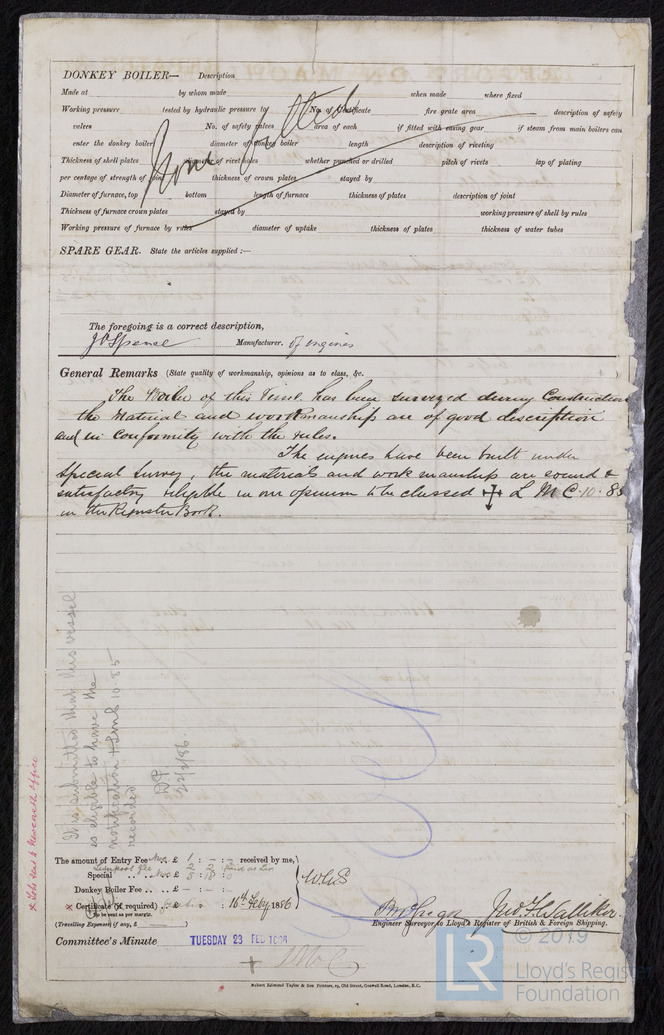 DONKEY BOILER— Description
Made at by whom made when made where fixed
Working pressure tested by hydraulic pressure to No. of Certificate fire grate area description of safety
valves No. of safety valves area of each if fitted with easing gear if steam from main boilers can
enter the donkey boiler diameter of donkey boiler length description of riveting
Thickness of shell plates diameter of rivet holes whether punched or drilled pitch of rivets lap of plating
per centage of strength of joint thickness of crown plates stayed by
Diameter of furnace, top bottom length of furnace thickness of plates description of joint
Thickness of furnace crown plates stayed by working pressure of shell by rules
Working pressure of furnace by rules diameter of uptake thickness of plates thickness of water tubes
None fitted
SPARE GEAR. State the articles supplied :—
The foregoing is a correct description,
J P Spence Manufacturer. of engines
General Remarks (State quality of workmanship, opinions as to class, &c. )
The Boiler of this Vessel has been surveyed during Construction
the Material and workmanship are of good description
and in Conformity with the rules.
The engines have been built under
Special Survey, the materials and workmanship are sound &
satisfactory & eligible in our opinion to be classed ✠ L M C 10.85
in the Register Book.
It is submitted that this vessel
is eligible to have the
notification + LMC 10.85
recorded
22/2/86.
The amount of Entry Fee £ 1 : - : - received by me,
Special £ 5 : 18 : 0
Donkey Boiler Fee £ - : - :
× Certificate (if required) 16th Feby 1886
To be sent as per margin.
(Travelling Expenses if any, £ )
Engineer Surveyor to Lloyd's Register of British & Foreign Shipping.
Committee's Minute TUESDAY 23 FEB 1886
Robert Edmund Taylor & Son Printers, 19, Old Street, Goswell Road, London, E.C.
© 2019
LR
Lloyd's Register
Foundation